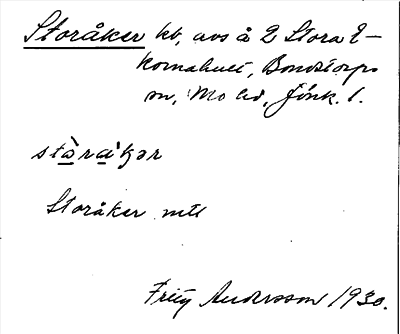 Storåker kb, avs å 2 Stora E-
kornahult, Bondstorps
sn, Mo hd, Jönk. l.
stàrákər
Storåker mtl
Andersson 1930.